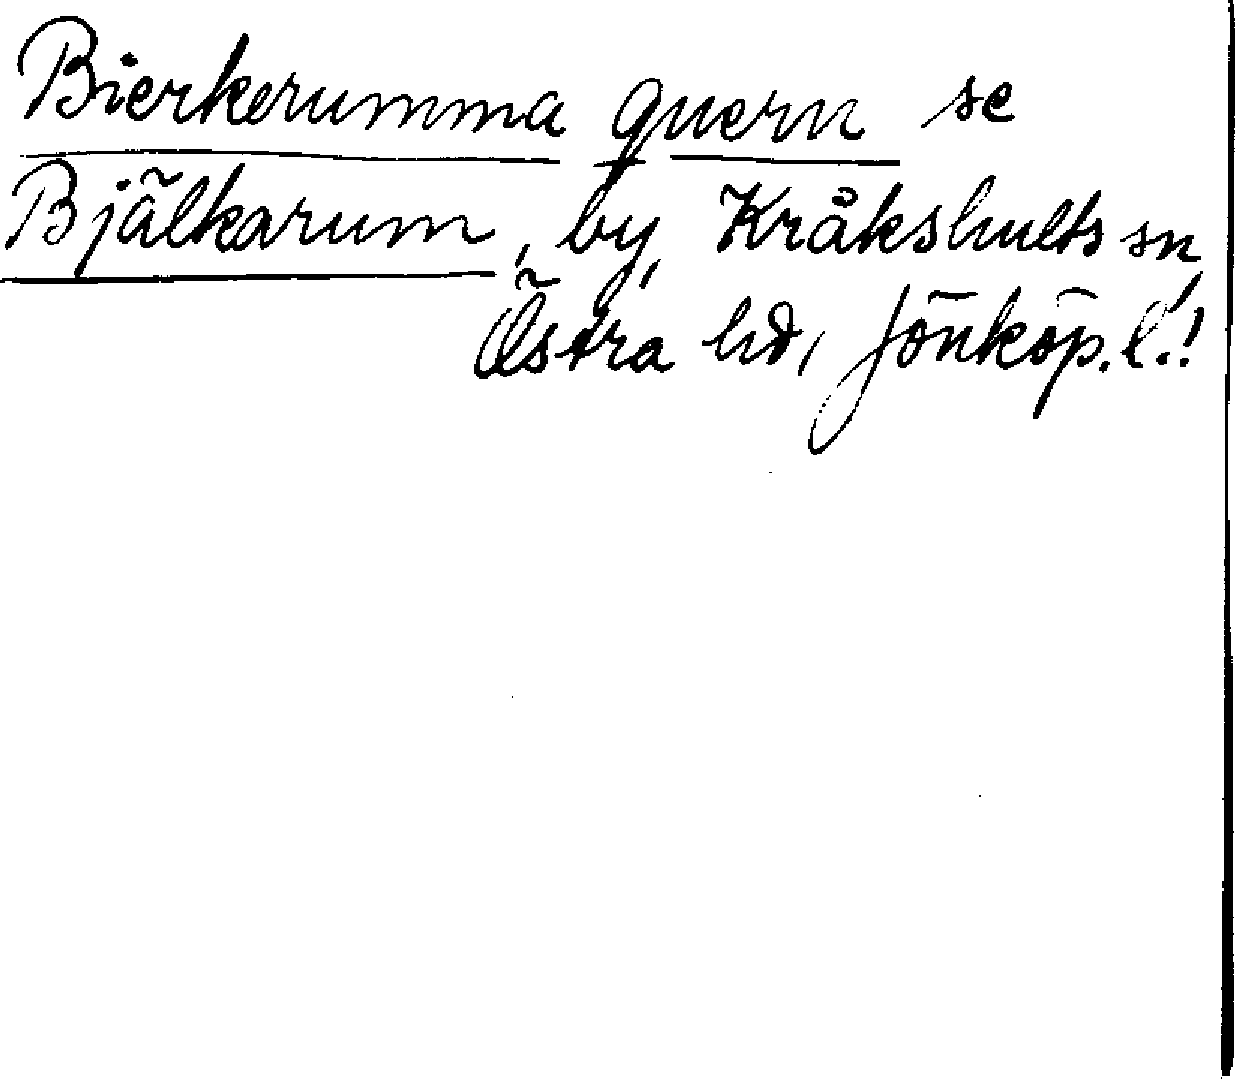 Bierkerumma quern se
Bjälkarum, by, Kråkshults sn,
Östra hd, Jönköp. l.!